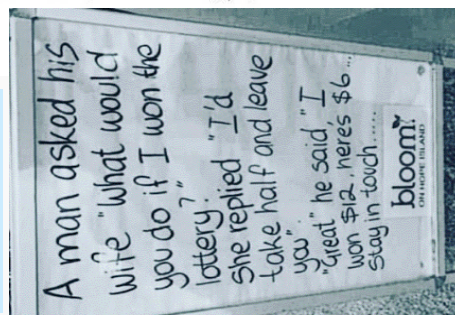 A man asked his
wife "What would
you do if I won the
lottery?"
She replied "I'd
take half and leave
you"
"Great" he said, "I
won $12, here's $6...
stay in touch.....
bloom
ON HOPE ISLAND